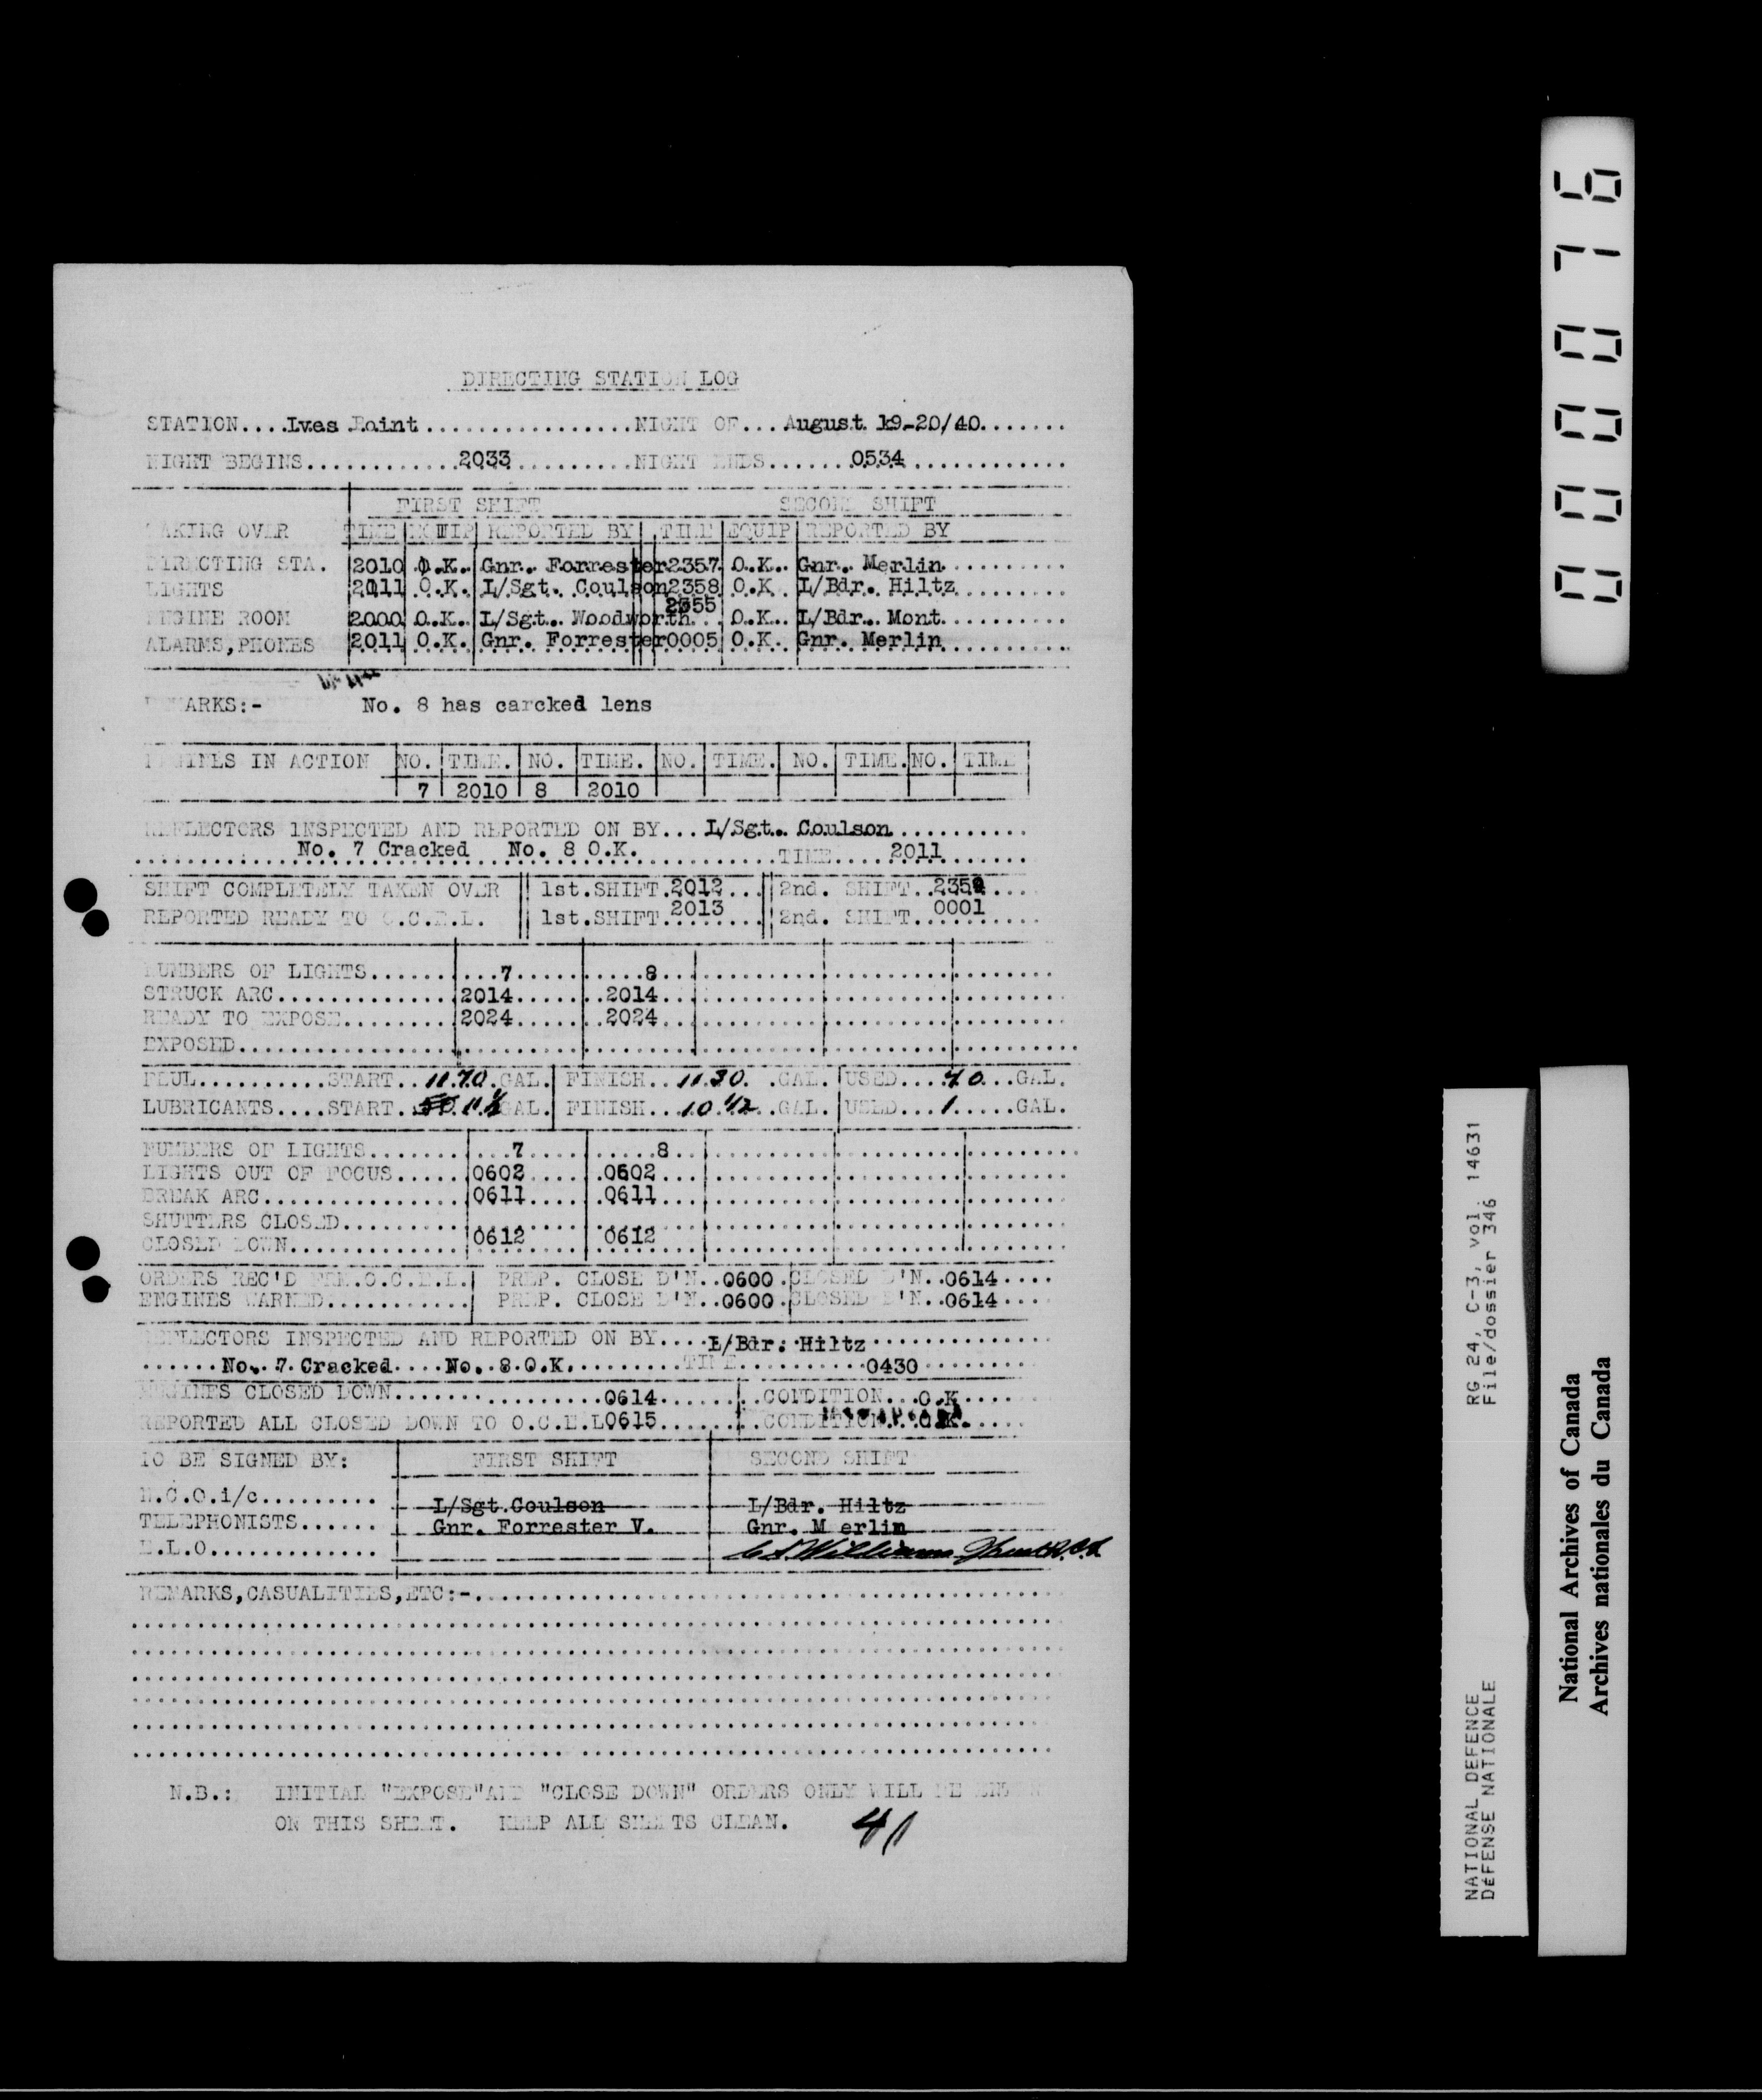 DIRECTING STATION LOG
STATION....Ives Point................NIGHT OF...August 19-20/40.......
NIGHT BEGINS............2033.........NIGHT ENDS.......0534............
FIRST SHIFT SECOND SHIFT
TAKING OVER TIME EQUIP REPORTED BY TIME EQUIP REPORTED BY
DIRECTING STA. 2010 O.K. Gnr. Forrester 2357 O.K. Gnr. Merlin
LIGHTS 2011 O.K. L/Sgt. Coulson 2358 O.K L/Bdr. Hiltz
ENGINE ROOM 2000 O.K. L/Sgt. Woodworth 2355 O.K. L/Bdr. Mont
ALARMS,PHONES 2011 O.K. Gnr. Forrester 0005 O.K. Gnr. Merlin
REMARKS:- No. 8 has carcked lens
ENGINES IN ACTION NO. TIME. NO. TIME. NO. TIME. NO. TIME. NO. TIME
7 2010 8 2010
REFLECTORS INSPECTED AND REPORTED ON BY... L/Sgt. Coulson
No. 7 Cracked No. 8 O.K. TIME....2011
SHIFT COMPLETELY TAKEN OVER 1st.SHIFT.2012... 2nd. SHIFT..2359....
REPORTED READY TO O.C.E.L. 1st.SHIFT.2013 2nd. SHIFT..0001
NUMBERS OF LIGHTS 7 8
STRUCK ARC 2014 2014
READY TO EXPOSE 2024 2024
EXPOSED
FEUL..........START..1170.GAL. FINISH..1130..GAL. USED....40...GAL.
LUBRICANTS....START..11½GAL. FINISH...10 1/2..GAL. USED...1.....GAL.
NUMBERS OF LIGHTS 7 8
LIGHTS OUT OF FOCUS 0602 0602
BREAK ARC 0611 0611
SHUTTERS CLOSED
CLOSED DOWN 0612 0612
ORDERS REC'D FRM.O.C.E.L. PREP. CLOSE D'N..0600.CLOSED D'N..0614....
ENGINES WARNED........... PREP. CLOSE D'N..0600.CLOSED D'N..0614....
REFLECTORS INSPECTED AND REPORTED ON BY....L/Bdr. Hiltz
No. 7 Cracked....No. 8 O.K.........TIME...........0430
ENGINES CLOSED DOWN 0614 CONDITION...O.K
REPORTED ALL CLOSED DOWN TO O.C.E.L0615 CONDITION...O.K.
TO BE SIGNED BY: FIRST SHIFT SECOND SHIFT
N.C.O.i/c......... L/Sgt.Coulson L/Bdr. Hiltz
TELEPHONISTS...... Gnr. Forrester V. Gnr. M erlin
E.L.O............. Williams
REMARKS,CASUALITIES,ETC:-
N.B.: INITIAL "EXPOSE"AND "CLOSE DOWN" ORDERS ONLY WILL BE
ON THIS SHEET. KEEP ALL SHEETS CLEAN.
41
000076
RG 24, C-3, vol. 14631
File/dossier 346
NATIONAL DEFENCE
DÉFENSE NATIONALE
National Archives of Canada
Archives nationales du Canada